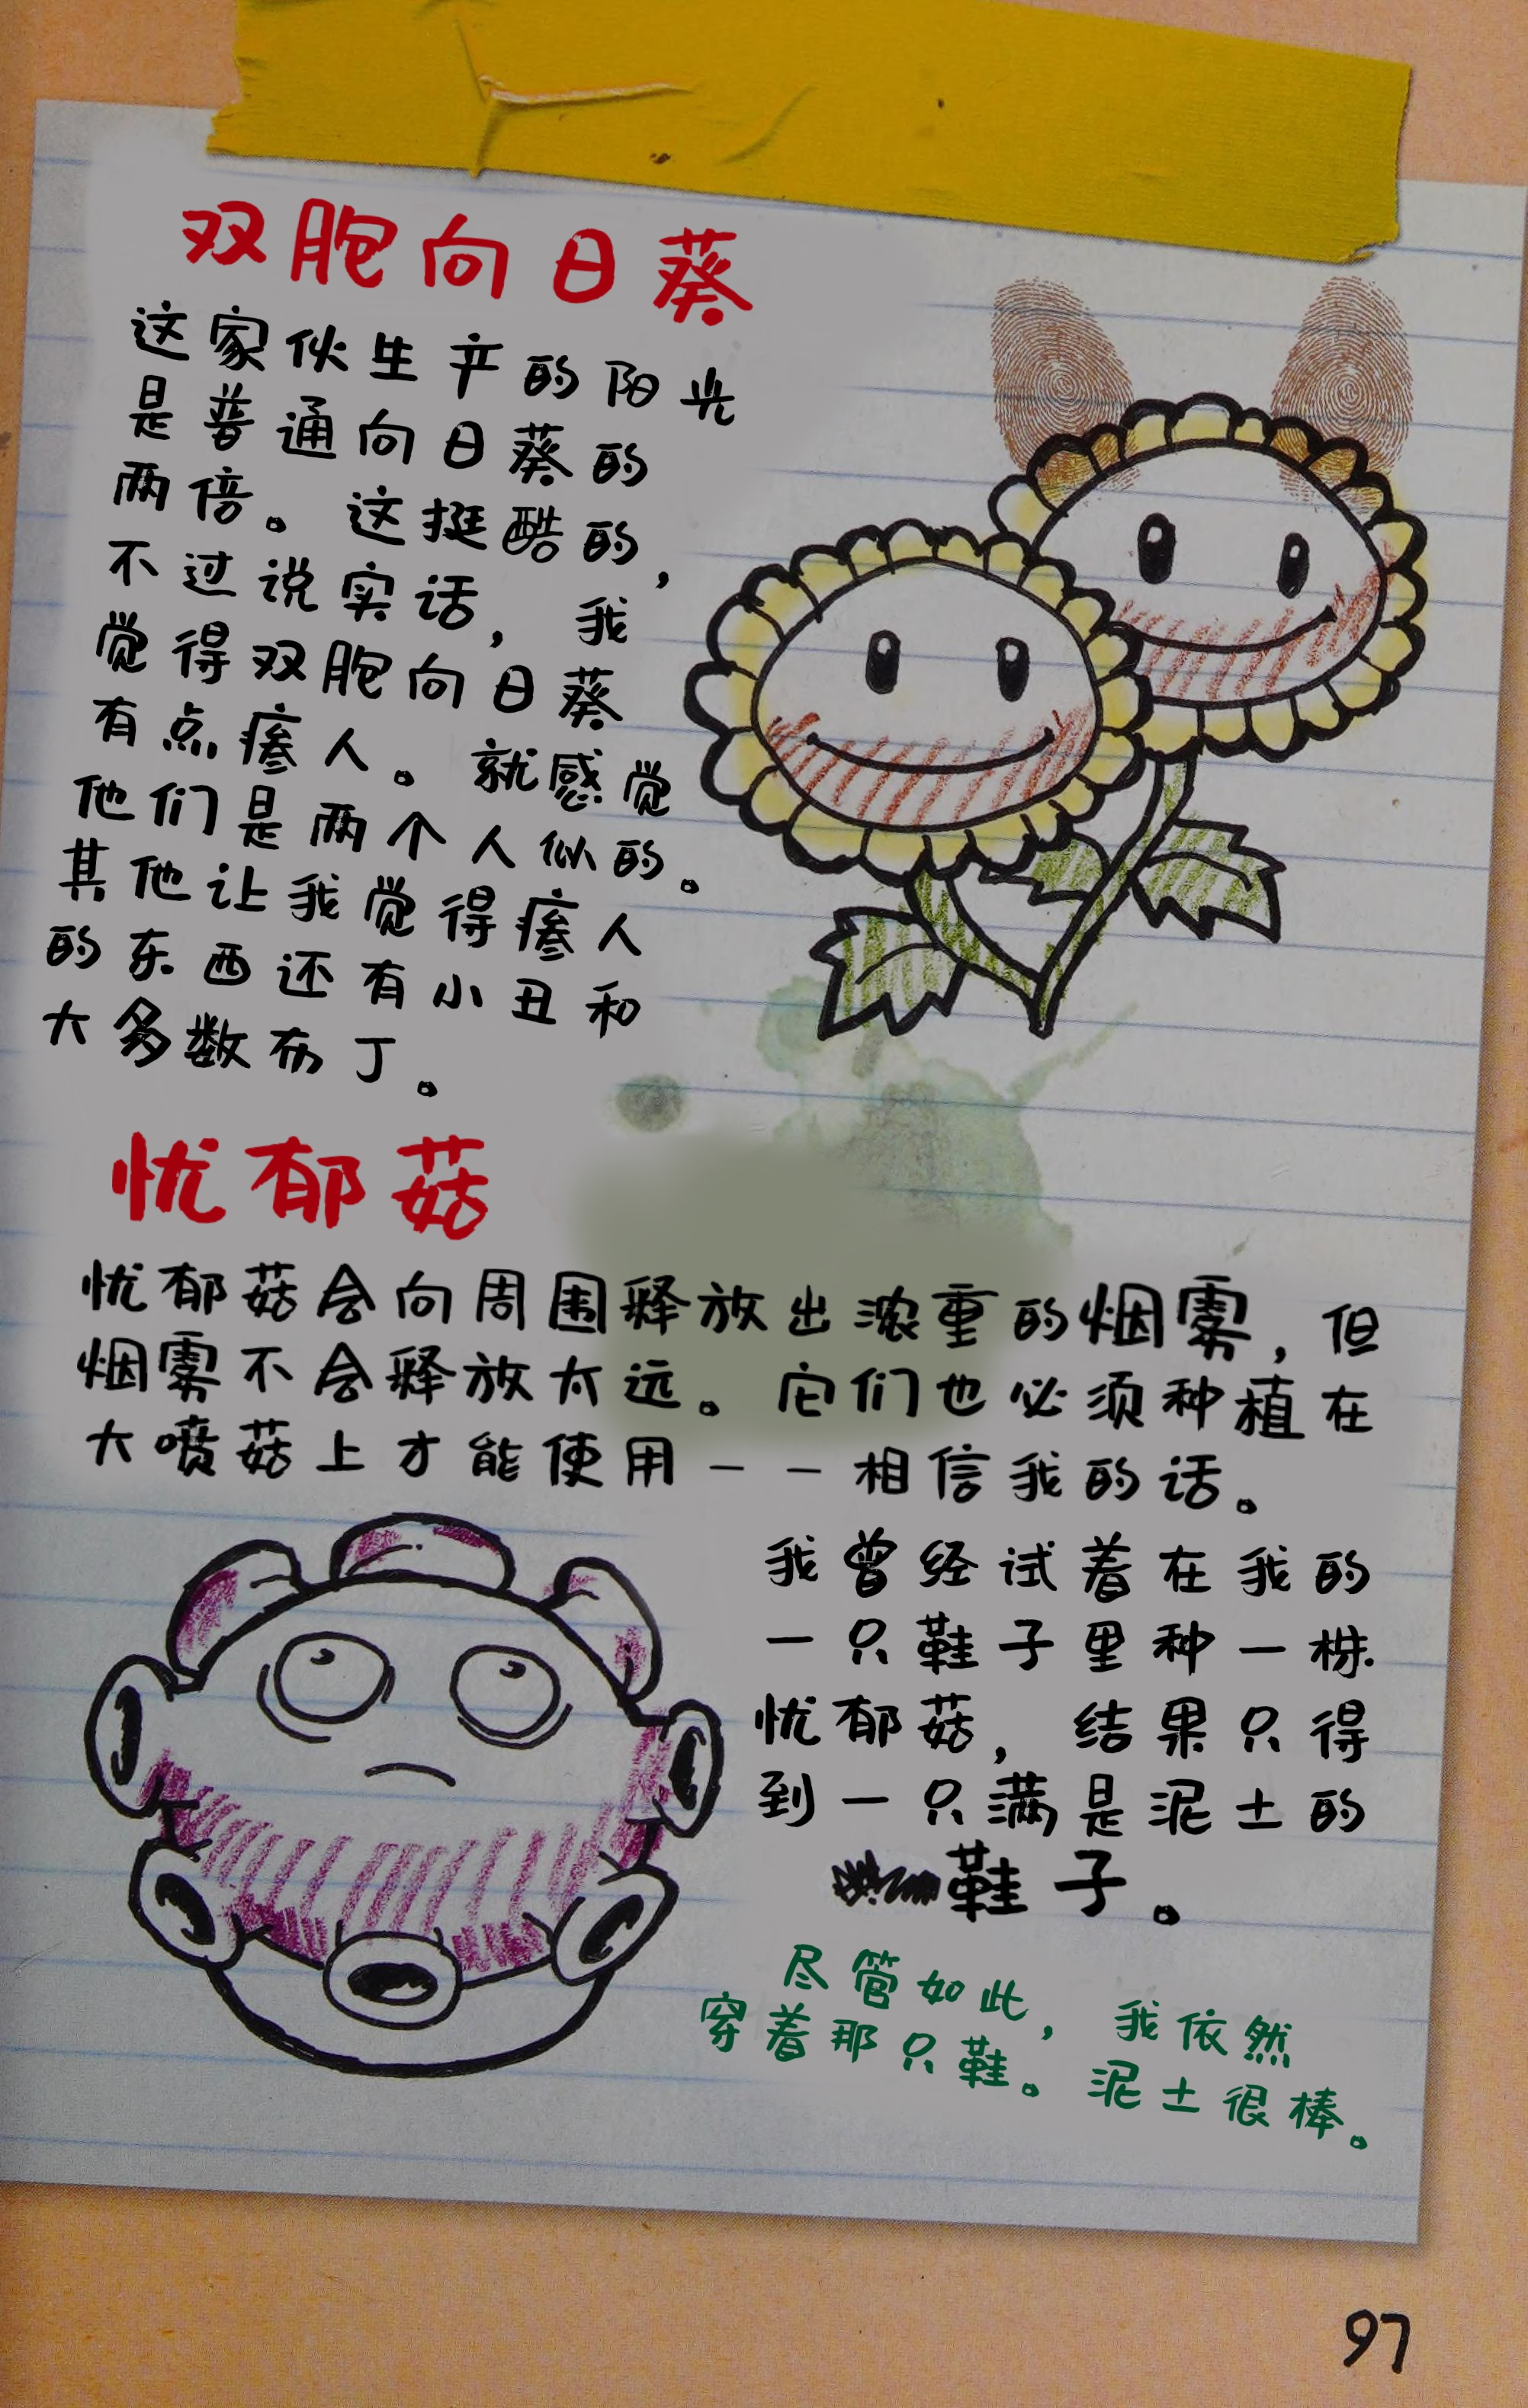 双胞向日葵
这家伙生产的阳光
是普通向日葵的
两倍。这挺酷的，
不过说实话，我
觉得双胞向日葵
有点瘆人。就感觉
他们是两个人似的。
其他让我觉得瘆人
的东西还有小丑和
大多数布丁。
忧郁菇
忧郁菇会向周围释放出浓重的烟雾，但
烟雾不会释放太远。它们也必须种植在
大喷菇上才能使用－－相信我的话。
我曾经试着在我的
一只鞋子里种一株
忧郁菇，结果只得
到一只满是泥土的
鞋子。
尽管如此，我依然
穿着那只鞋。泥土很棒。
97